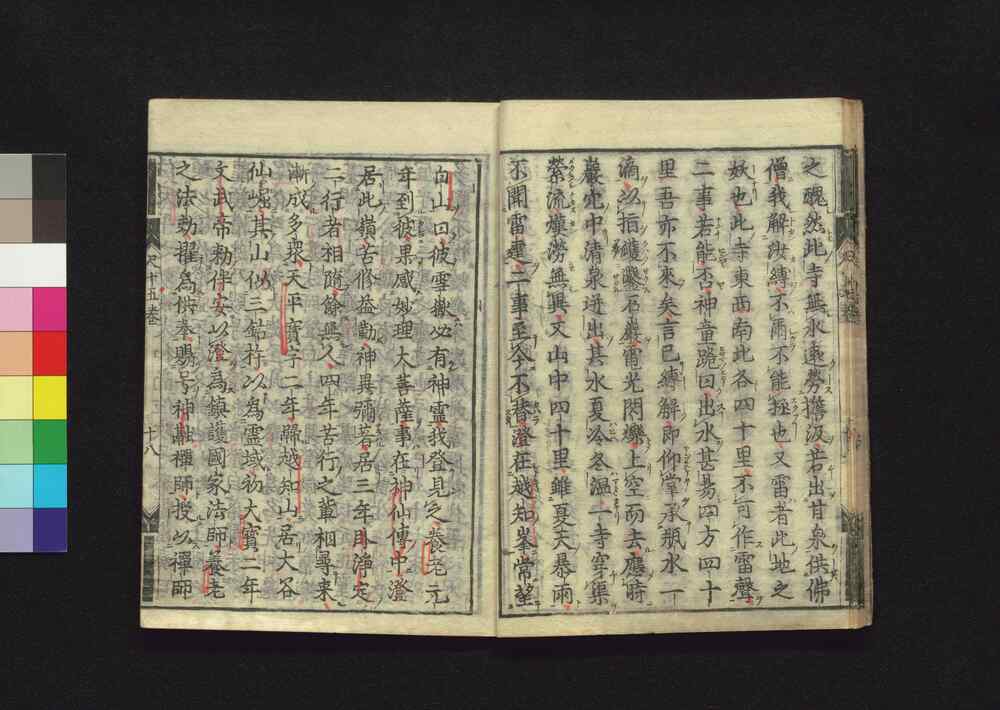 之醜然此寺無水遠勞擔汲若出甘泉供佛
僧我解汝縛不爾不能拯也又雷者此地之
妖也此寺東西南北各四十里不可作雷聲
二事若能否神童跪曰出水甚易四方四十
里吾亦不來矣言已縛解即仰掌承瓶水一
滴以指鑿石巖電光閃爍上空而去應時
巖穴中清泉迸出其水夏冷冬温一寺穿渠
縈流瀵澇無異又山中四十里雖夏天暴雨
不聞雷霆二事至今不替澄在越知峯常望
白山曰彼雪嶽必有神靈我登見之養老元
年到彼果感妙理大菩薩事在神仙傳中澄
居此嶺苦修益勤神異彌著居三年臥淨定
二行者相隨餘無人四年苦行之輩相尋來
漸成多衆天平寶字二年歸越知山居大谷
仙崛其山似三鈷杵以為靈域初大寶二年
文武帝勅伴安以澄為鎮護國家法師養老
之法効擢為供奉賜号神融禪師授以禪師
尺十五卷
十八